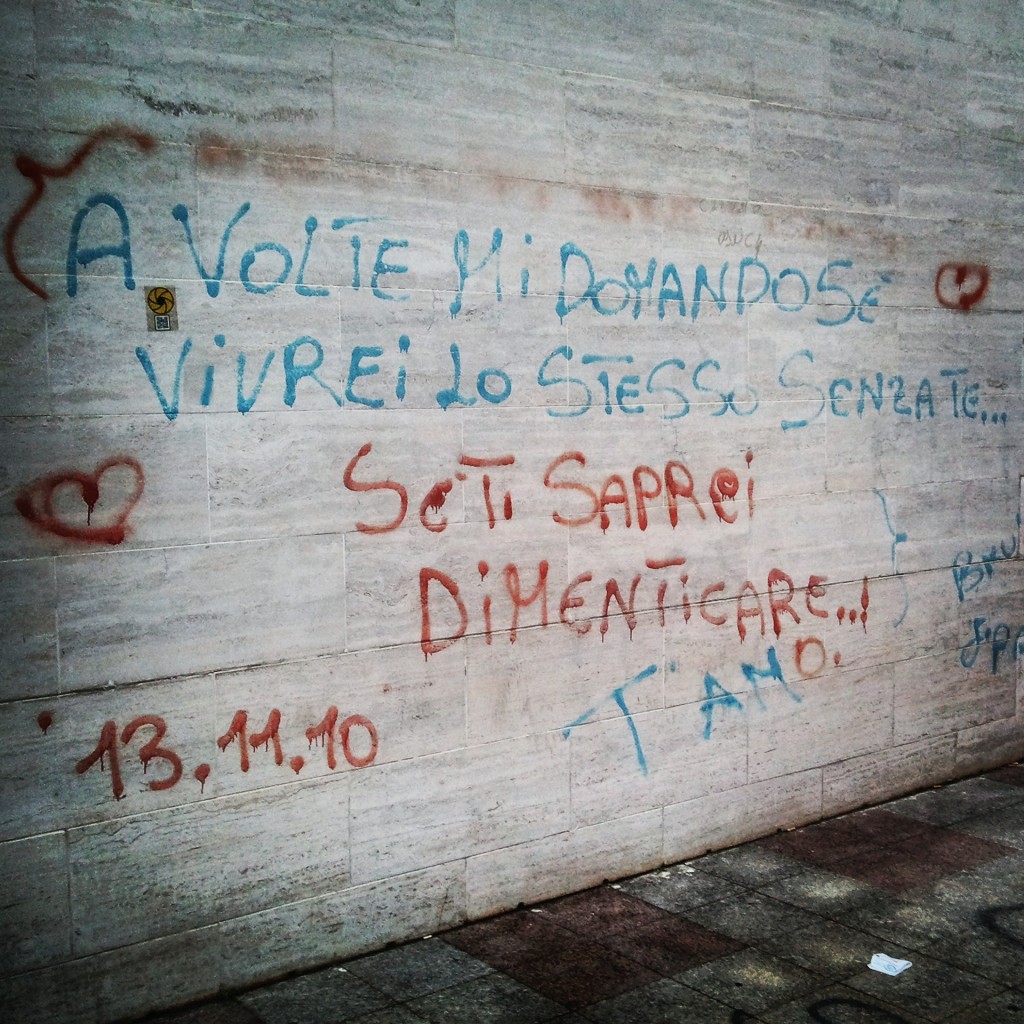 A VOLTE Mi DOMANDO SE
ViVREi LO STESSO SENZA TE...
SE Ti SAPREi
DiMENTiCARE...!
T'AMO.
13.11.10